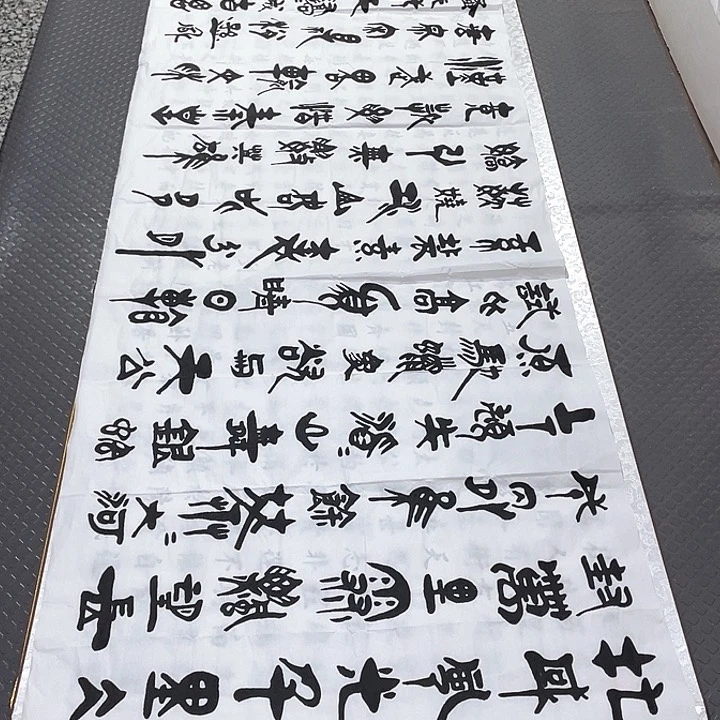 北國風光千里冰
封萬里雪飄望長
城內外惟餘莽=大河
上下頓失滔=山舞銀蛇
原馳蠟象欲與天公
試比高須晴日看
紅裝素裹分外
妖嬈江山如此多
嬌引無數英雄
競折腰惜秦皇
漢武略輸文采
唐宗宋祖稍遜風